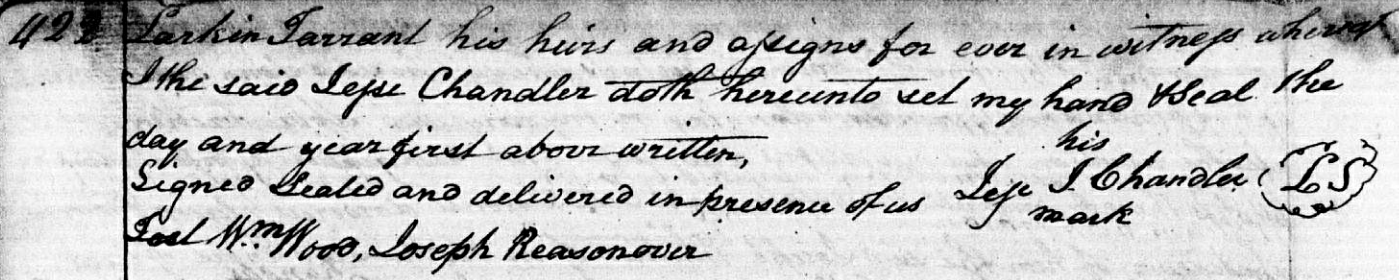 422 Larkin Tarrant his heirs and assigns for ever in witness whereof
I the said Jesse Chandler doth hereunto set my hand & Seal the
day and year first above written,
his
Signed Sealed and delivered in presence of us Jesse J. Chandler (LS)
mark
Test Wm Wood, Joseph Reasonover